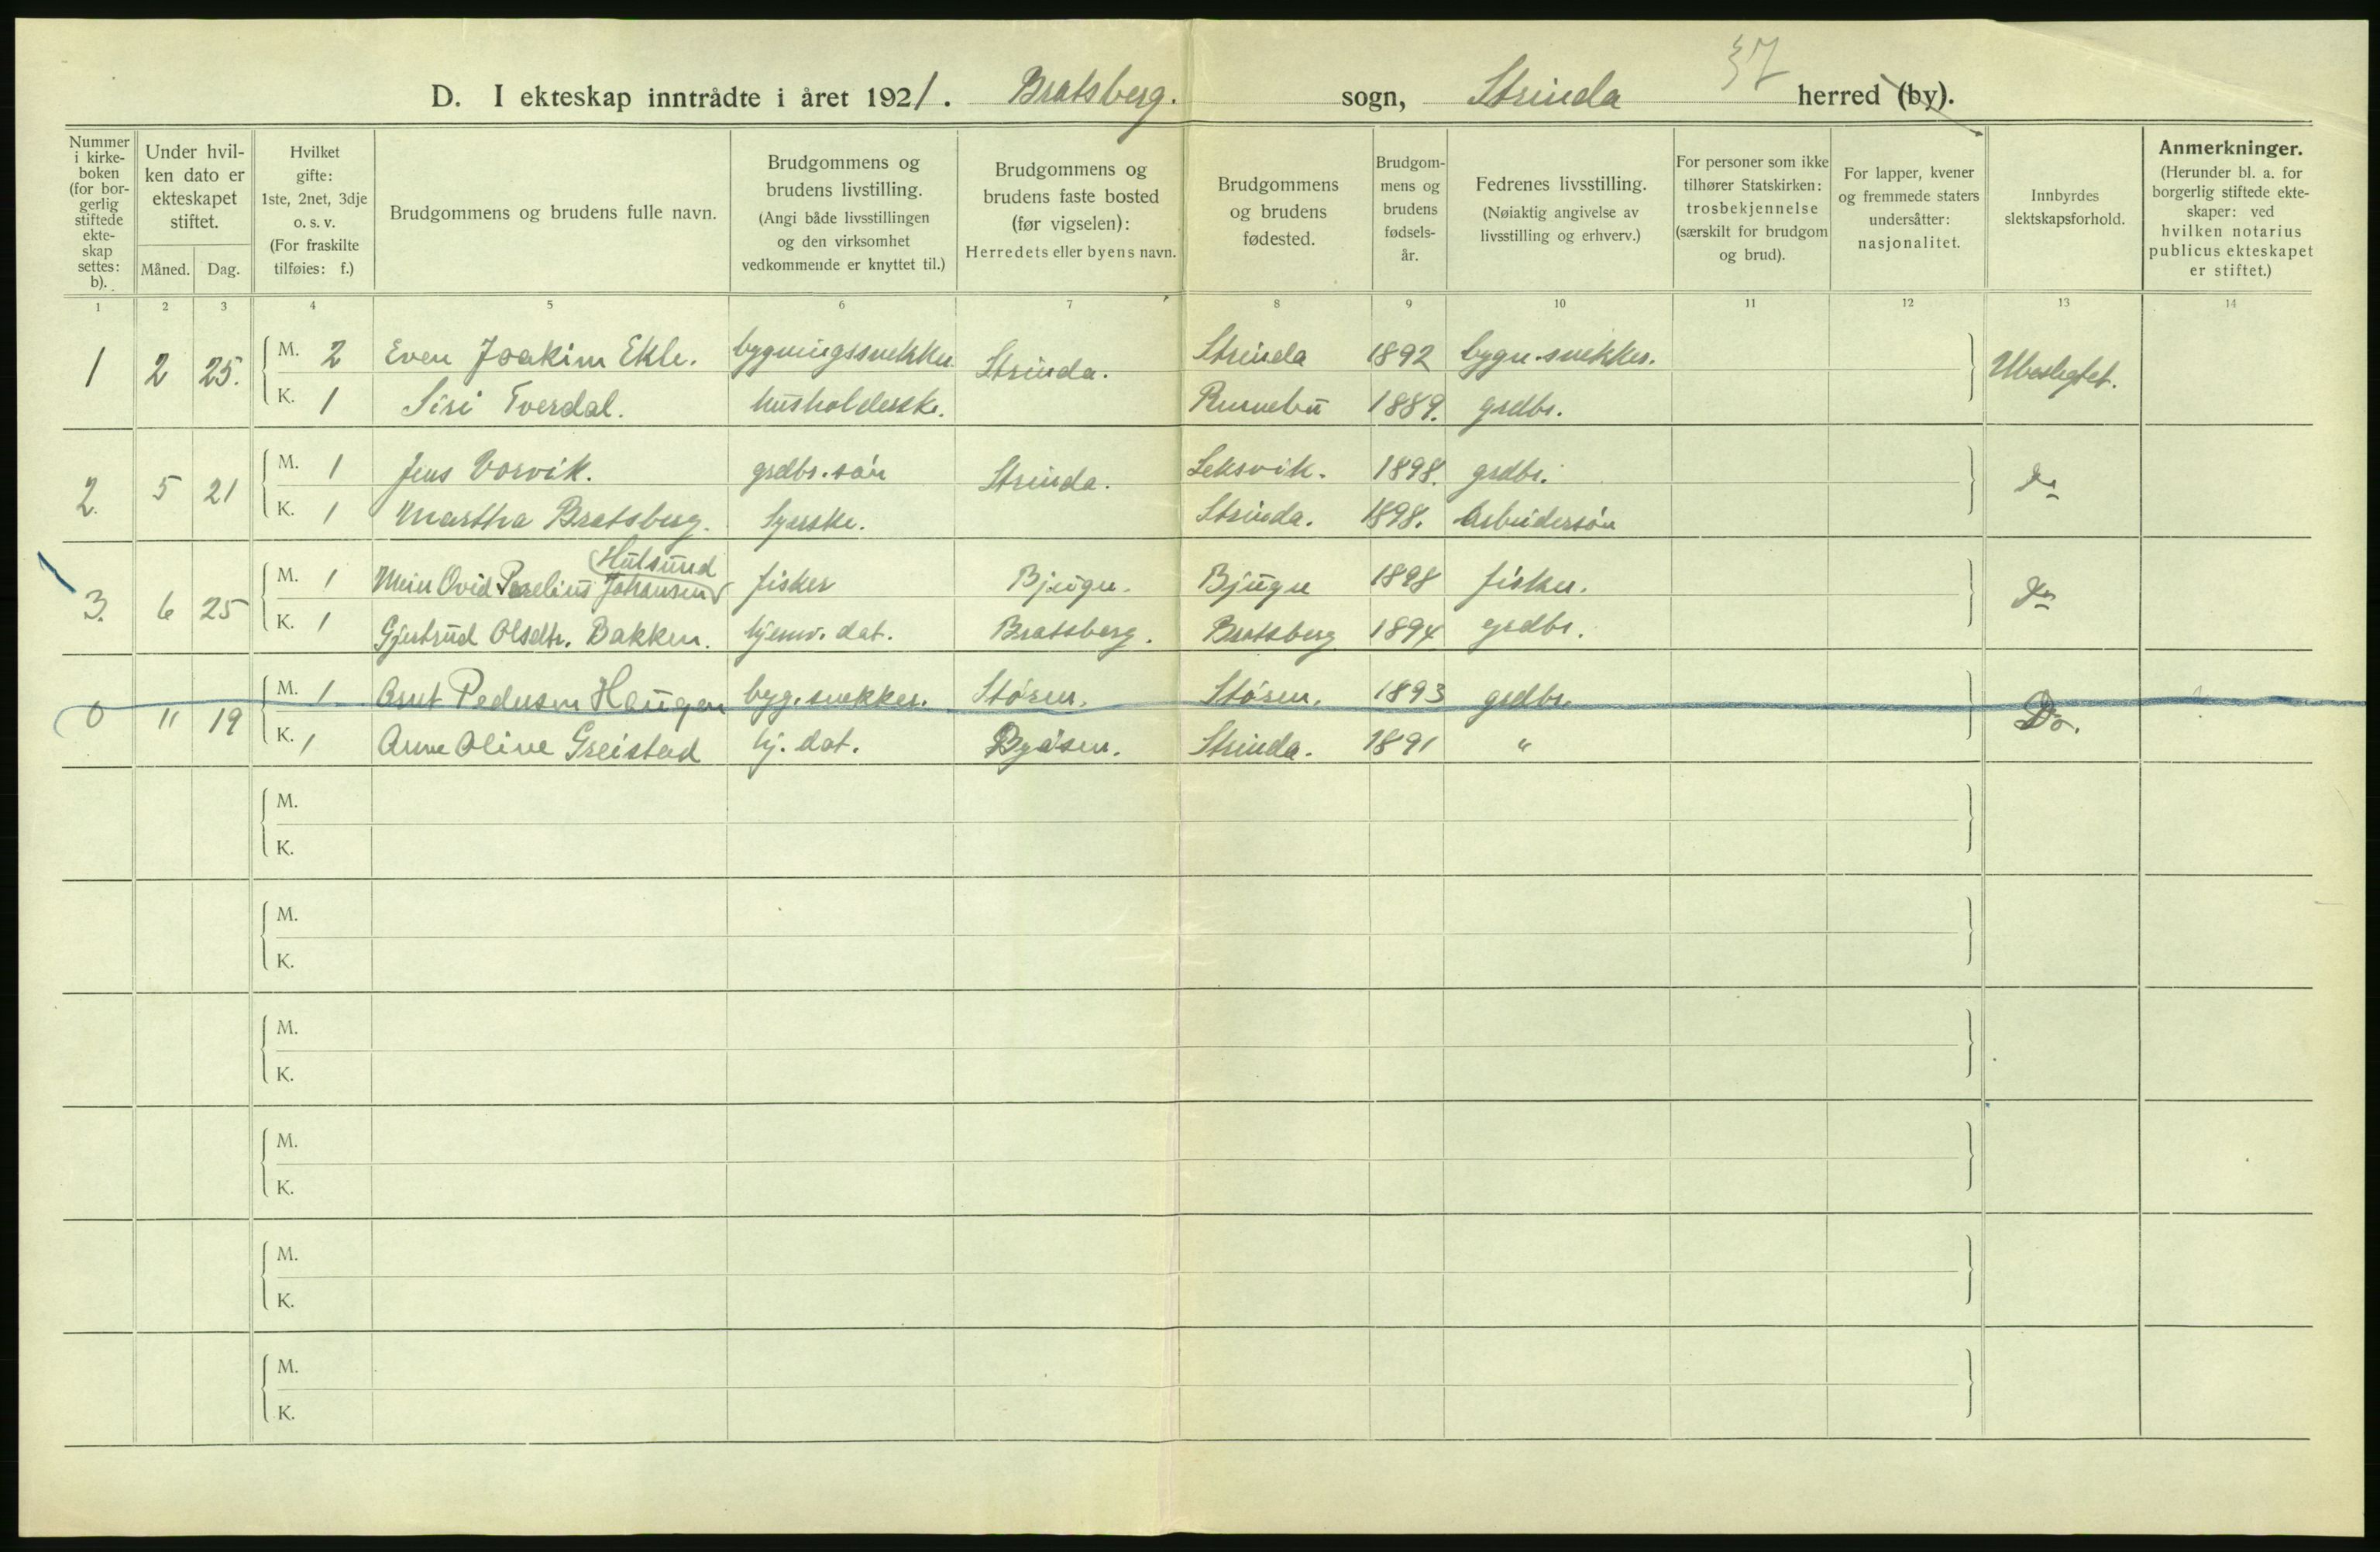 37
D. I ekteskap inntrådte i året 1921. Bratsberg. sogn, Strinda herred (by).
Nummer i kirke-boken (for bor-gerlig stiftede ekte-skap settes: b).
Under hvil-ken dato er ekteskapet stiftet.
Måned. Dag.
Hvilket gifte: 1ste, 2net, 3dje o. s. v. (For fraskilte tilføies: f.)
Brudgommens og brudens fulle navn.
Brudgommens og brudens livstilling. (Angi både livsstillingen og den virksomhet vedkommende er knyttet til.)
Brudgommens og brudens faste bosted (før vigselen): Herredets eller byens navn.
Brudgommens og brudens fødested.
Brudgom-mens og brudens fødsels-år.
Fedrenes livsstilling. (Nøiaktig angivelse av livsstilling og erhverv.)
For personer som ikke tilhører Statskirken: trosbekjennelse (særskilt for brudgom og brud).
For lapper, kvener og fremmede staters undersåtter: nasjonalitet.
Innbyrdes slektskapsforhold.
Anmerkninger. (Herunder bl. a. for borgerlig stiftede ekte-skaper: ved hvilken notarius publicus ekteskapet er stiftet.)
1 2 3 4 5 6 7 8 9 10 11 12 13 14
1 2 25. M. 2 Even Joakim Ekle. bygningssnekker. Strinda. Strinda 1892 bygn.snekker. Ubeslegtet.
K. 1 Siri Tverdal. husholderske. Rennebu 1889. grdbr.
2. 5 21 M. 1 Jens Vorvik. grdbr.søn Strinda. Leksvik. 1898. grdbr. Do
K. 1 Martha Bratsberg. Syerske. Strinda. 1898. Arbeidersøn
Hulsund
3. 6 25 M. 1 Ovid Johansen fisker Bjugn. Bjugn 1898 fisker. Do
K. 1 Gjertrud Olsdtr. Bakken. hjemv. dat. Bratsberg. Bratsberg 1894 grdbr.
0 11 19 M. 1 Arnt Pedersen Haugen byg. snekker. Støren. Støren. 1893 grdbr. Do.
K. 1 Anne Oline Greistad hj. dat. Byåsen. Strinda. 1891 "
M.
K.
M.
K.
M.
K.
M.
K.
M.
K.
M.
K.